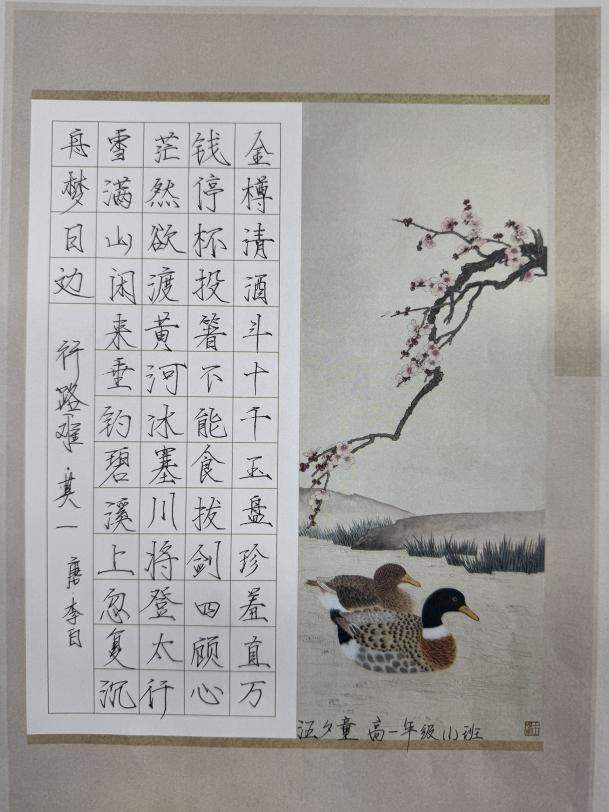 金樽清酒斗十千玉盘珍羞直万
钱停杯投箸不能食拔剑四顾心
茫然欲渡黄河冰塞川将登太行
雪满山闲来垂钓碧溪上忽复沉
舟梦日边
行路难·其一 唐·李白
汪夕童 高一年级(1)班